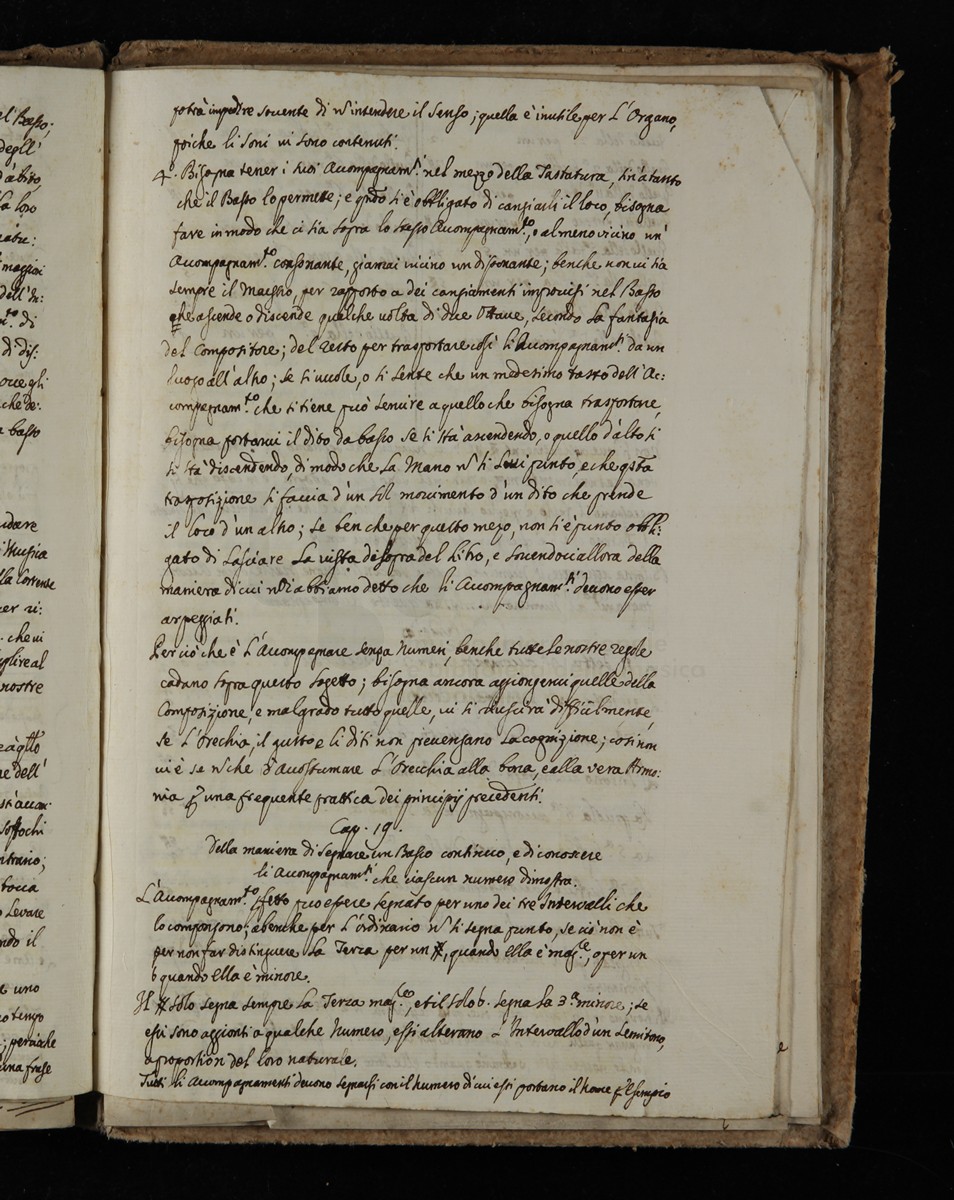 el Basso;
degll'
d'abito,
la loro
maggiori
dell'
di
ove gli
che
basso
udare
Musica
la Corrente
er ri:
che vi
nostre
dell'
trario;
bocca
Levare
ndo il
uno
tempo
; perciche
una frase
potrà impedire sovente di ñ intendere il senso; quella è inutile per L'Organo,
poiche li soni vi sono contenuti.
4.° Bisogna tener i tuoi Acompagnam.ti nel mezzo della Tastatura, sin'a tanto
che il Basso lo permette; e qñdo si è obbligato di cangiarli il loco, bisogna
fare in modo che ci sia sopra lo stesso Acompagnam.to, o almeno vicino un'
Acompagnam.to consonante, giamai vicino un dissonante; benche non vi sia
sempre il Maestro, per rapporto a dei cangiamenti improvisi nel Basso
che ascende o discende qualche volta di due Ottave, secondo La fantasia
del Compositore; del resto per trasportare così li Acompagnam.ti da un
luogo all'altro; se si vuole, o si sente che un medesimo tasto dell'Ac:
compagnam.to che si tiene può servire a quello che bisogna trasportare,
bisogna portarvi il dito da basso se si stà ascendendo, o quello d'alto si
si stà discendendo, di modo che La Mano ñ si levi punto, e che qsta
trasposizione si faccia d'un sol movimento d'un dito che prende
il loco d'un altro; se ben che per questo mezo, non si è punto obbli:
gato di Lasciare La vista di sopra del Libro, e servendoci allora della
maniera di cui noi abbiamo detto che li Acompagnam.ti devono esser
arpeggiati.
Per ciò che è L'Acompagnare senza Numeri, benche tutte le nostre regole
cadano sopra questo sogetto; bisogna ancora aggiongervi quelle della
Composizione, e malgrado tutto quelle, vi si riuscirà difficilmente,
se L'Orechia, il gusto e li diti non prevengano La cognizione; così non
vi è se ñ che d'Acostumare L'Orecchia alla bona, e alla vera Armo:
nia p una frequente prattica dei principij precedenti.
Cap. 19.
Della maniera di Segnare un Basso continuo, e di conoscere
li Acompagnam.ti che ciascun numero dimostra.
L'Acompagnam.to pfetto può essere segnato per uno dei tre Intervalli che
lo compongono; abenche per L'ordinario ñ si segna punto, se ciò non è
per non far distinguere La Terza per un #, quando ella è mag.re, o per un
b quando ella è minore.
Il # solo segna sempre La Terza mag.re, et il solo b. segna La 3.a minore; se
essi sono aggionti a qualche Numero, essi alterano L'Intervallo d'un semitono,
a proportion del loro naturale.
Tutti li Acompagnamenti devono segnarsi con il numero di cui essi portano il nome p Esempio